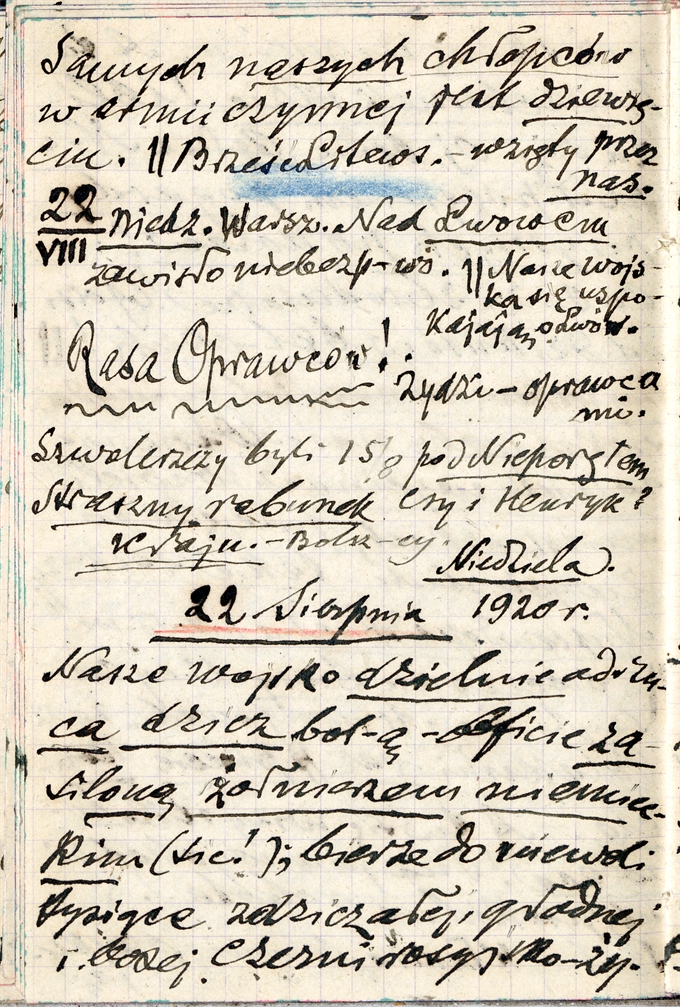 Samych naszych chłopców
w armii czynnej jest dziewię-
ciu. || Brześć Litews. – wzięty przez
nas.
22
VIII
Niedz. Warsz. Nad Lwowem
zawisło niebezp-wo. || Nasze wojs-
ka się uspo-
kajają o Lwów.
Rasa Oprawców!
Żydzi – oprawca
mi.
Szwoleżerzy byli 15/8 pod Nieporętem
Straszny rabunek Czy i Henryk?
kraju. – Bolsz-cy.
Niedziela.
22 Sierpnia 1920 r.
Nasze wojsko dzielnie odrzu-
ca dzicz bol-ą – obficie za-
siloną żołnierzem niemiec-
kim (sic!); bierze do niewoli
tysiące zdziczałej, głodnej
i bosej czerni rosyjsko-ży-